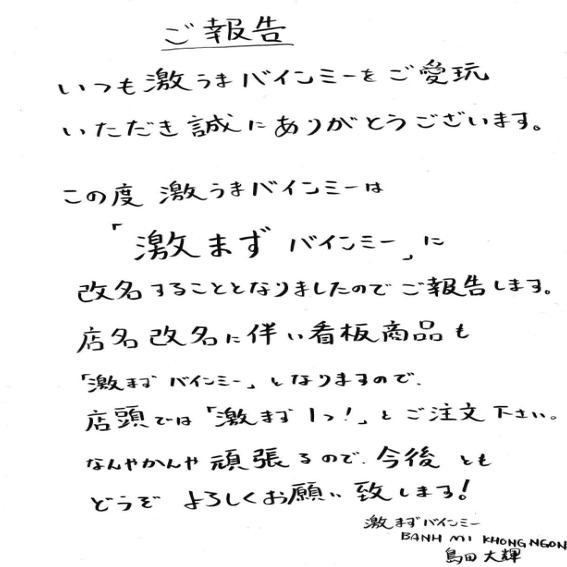 ご報告
いつも激うまバインミーをご愛玩
いただき誠にありがとうございます。
この度 激うまバインミーは
「激まずバインミー」に
改名することとなりましたのでご報告します。
店名改名に伴い看板商品も
「激まずバインミー」となりますので、
店頭では「激まず1つ!」とご注文下さい。
なんやかんや頑張るので、今後とも
どうぞよろしくお願い致します!
激まずバインミー
BANH MI KHONG NGON
島田大輝